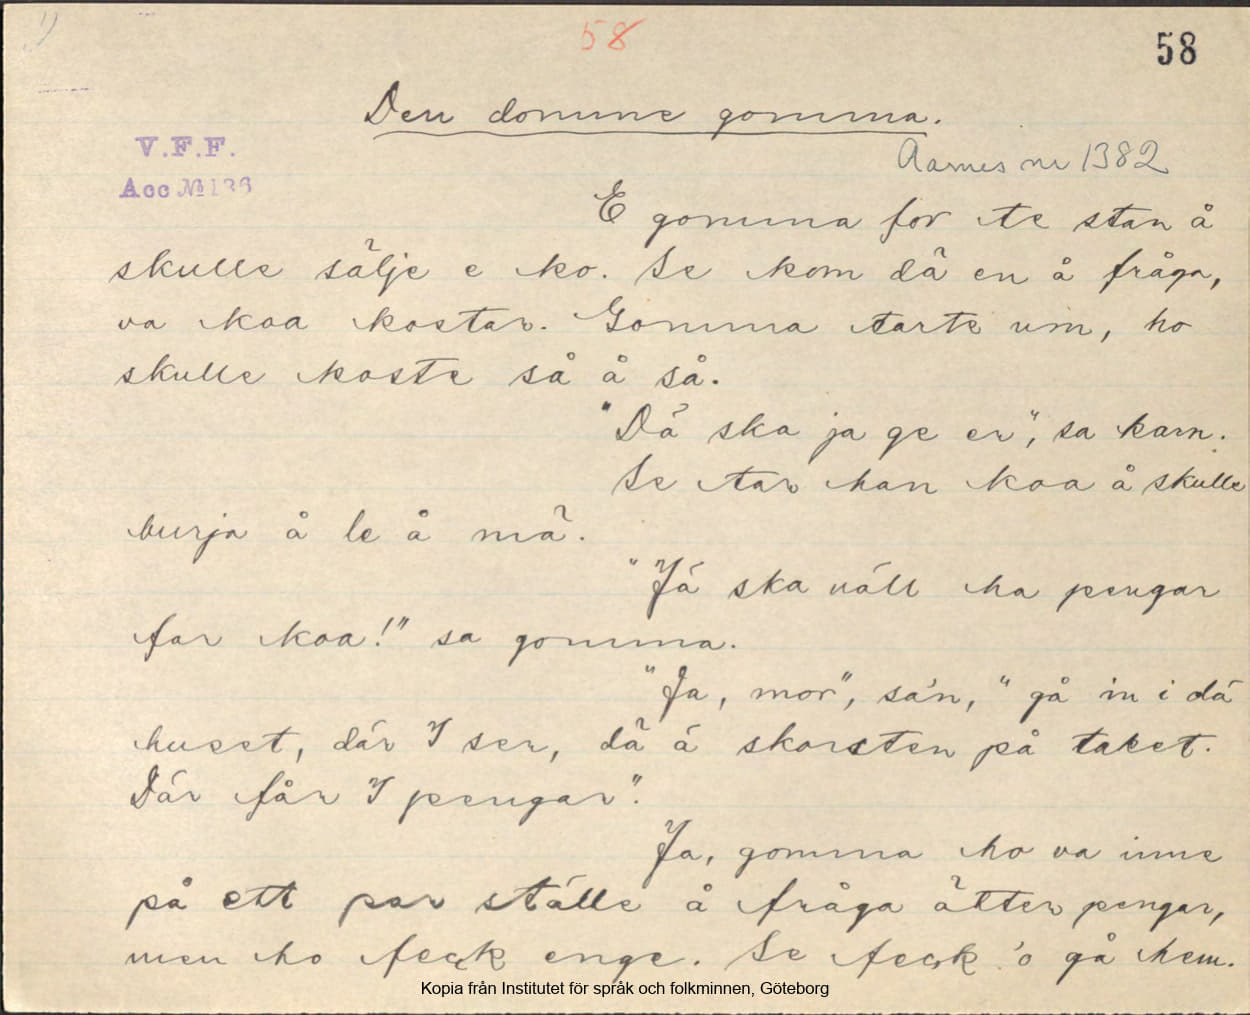 1)
58
58
Den domme gomma.
V.F.F.
Acc № 136
Aarnes nr 1382
E gomma for te stan å
skulle sälje e ko. Se kom dä en å fråga,
va koa kostar. Gomma tarte um, ho
skulle koste så å så.
"Dä ska ja ge er", sa karn.
Se tar han koa å skulle
burja å le å mä.
"Já ska väll ha pengar
far koa!" sa gomma.
"Ja, mor", sa'n, "gå in i dá
huset, där I ser, dä á skorsten på taket.
Där får I pengar".
Ja, gomma ho va inne
på ett par ställe å fråga ätter pengar,
men ho feck enge. Se feck 'o gå hem.
Kopia från Institutet för språk och folkminnen, Göteborg